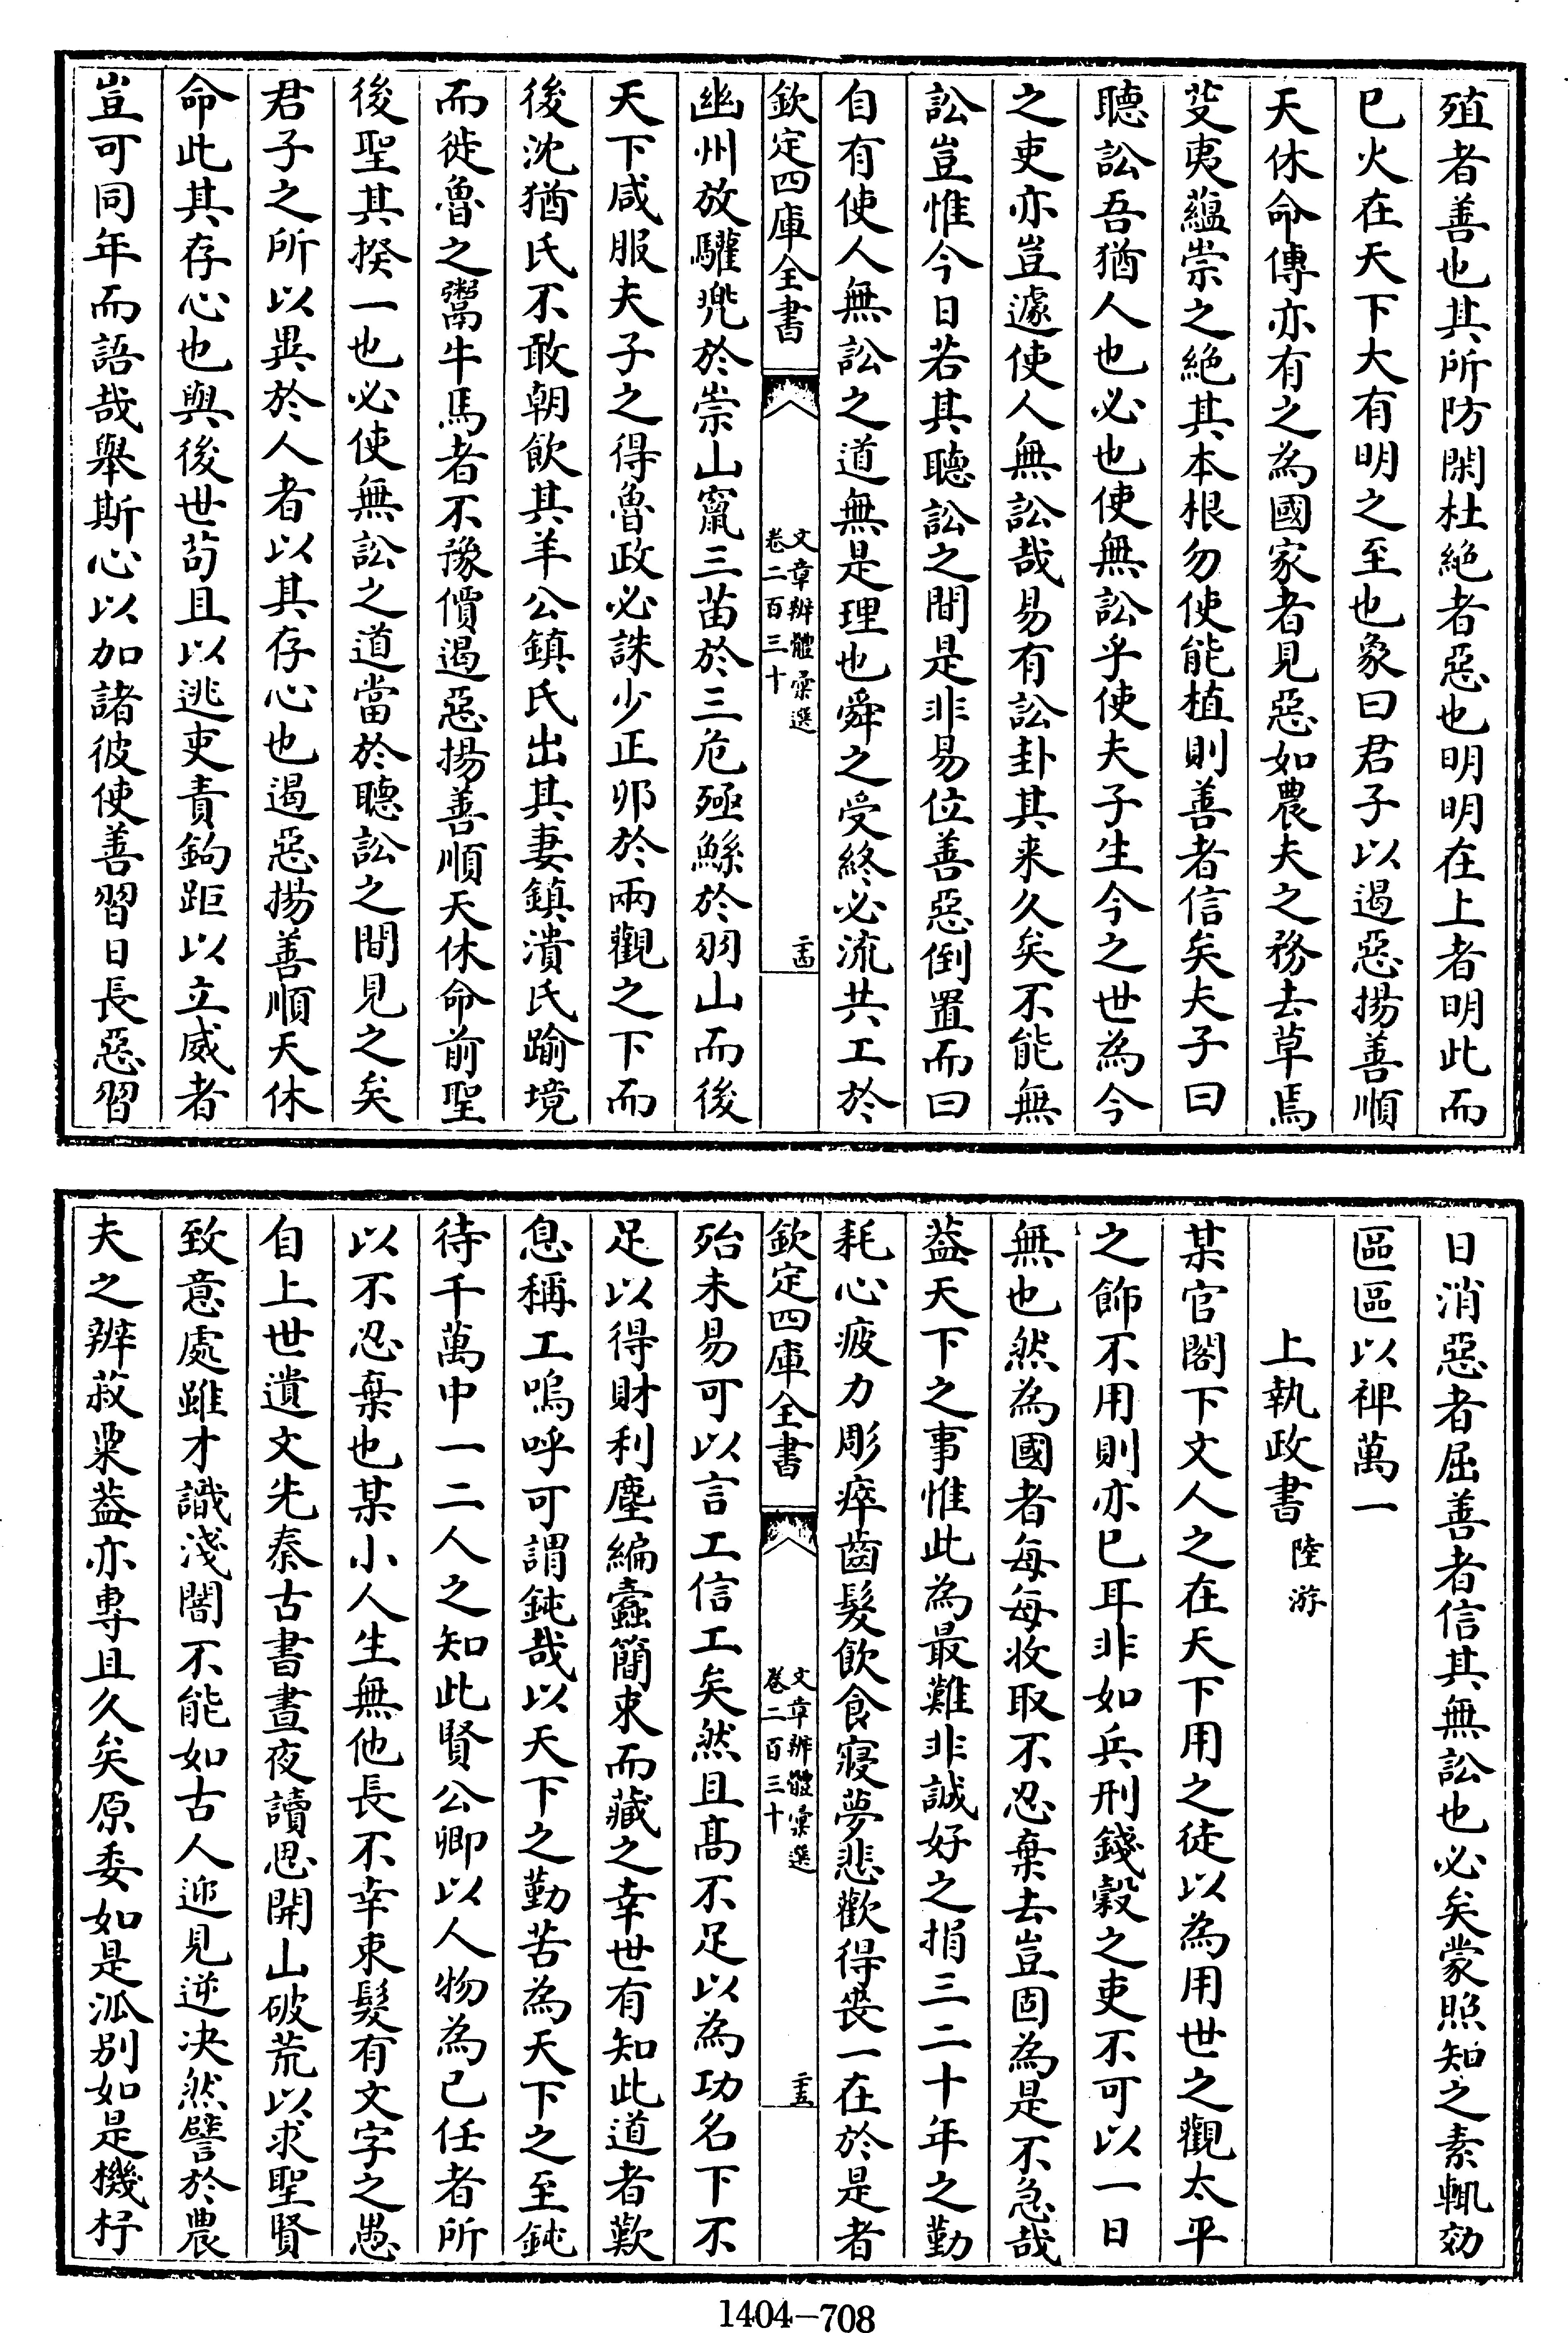 殖者善也其所防閑杜絶者惡也明明在上者明此而
已火在天下大有明之至也象曰君子以遏惡揚善順
天休命傳亦有之為國家者見惡如農夫之務去草焉
芟夷蘊崇之絶其本根勿使能植則善者信矣夫子曰
聽訟吾猶人也必也使無訟乎使夫子生今之世為今
之吏亦豈遽使人無訟哉易有訟卦其来久矣不能無
訟豈惟今日若其聽訟之間是非易位善惡倒置而曰
自有使人無訟之道無是理也舜之受終必流共工於
欽定四庫全書
文章辨體彙選
卷二百三十
二十四
幽州放驩兜於崇山竄三苗於三危殛鯀於羽山而後
天下咸服夫子之得魯政必誅少正卯於兩觀之下而
後沈猶氏不敢朝飲其羊公鎮氏出其妻鎮潰氏踰境
而徙魯之鬻牛馬者不豫價遏惡揚善順天休命前聖
後聖其揆一也必使無訟之道當於聽訟之間見之矣
君子之所以異於人者以其存心也遏惡揚善順天休
命此其存心也與後世苟且以逃吏責鉤距以立威者
豈可同年而語哉舉斯心以加諸彼使善習日長惡習
日消惡者屈善者信其無訟也必矣蒙照知之素輒効
區區以裨萬一
上執政書 陸游
某官閣下文人之在天下用之徒以為用世之觀太平
之飾不用則亦已耳非如兵刑錢榖之吏不可以一日
無也然為國者每每收取不忍棄去豈固為是不急哉
葢天下之事惟此為最難非誠好之捐三二十年之勤
耗心疲力彫瘁齒髮飲食寢夢悲歡得喪一在於是者
欽定四庫全書
文章辨體彙選
卷二百三十
二十五
殆未易可以言工信工矣然且髙不足以為功名下不
足以得財利塵編蠧簡束而藏之幸世有知此道者歎
息稱工嗚呼可謂鈍哉以天下之勤苦為天下之至鈍
待千萬中一二人之知此賢公卿以人物為已任者所
以不忍棄也某小人生無他長不幸束髮有文字之愚
自上世遺文先秦古書晝夜讀思開山破荒以求聖賢
致意處雖才識淺闇不能如古人迎見逆决然譬於農
夫之辨菽粟葢亦專且久矣原委如是派别如是機杼
1404—708